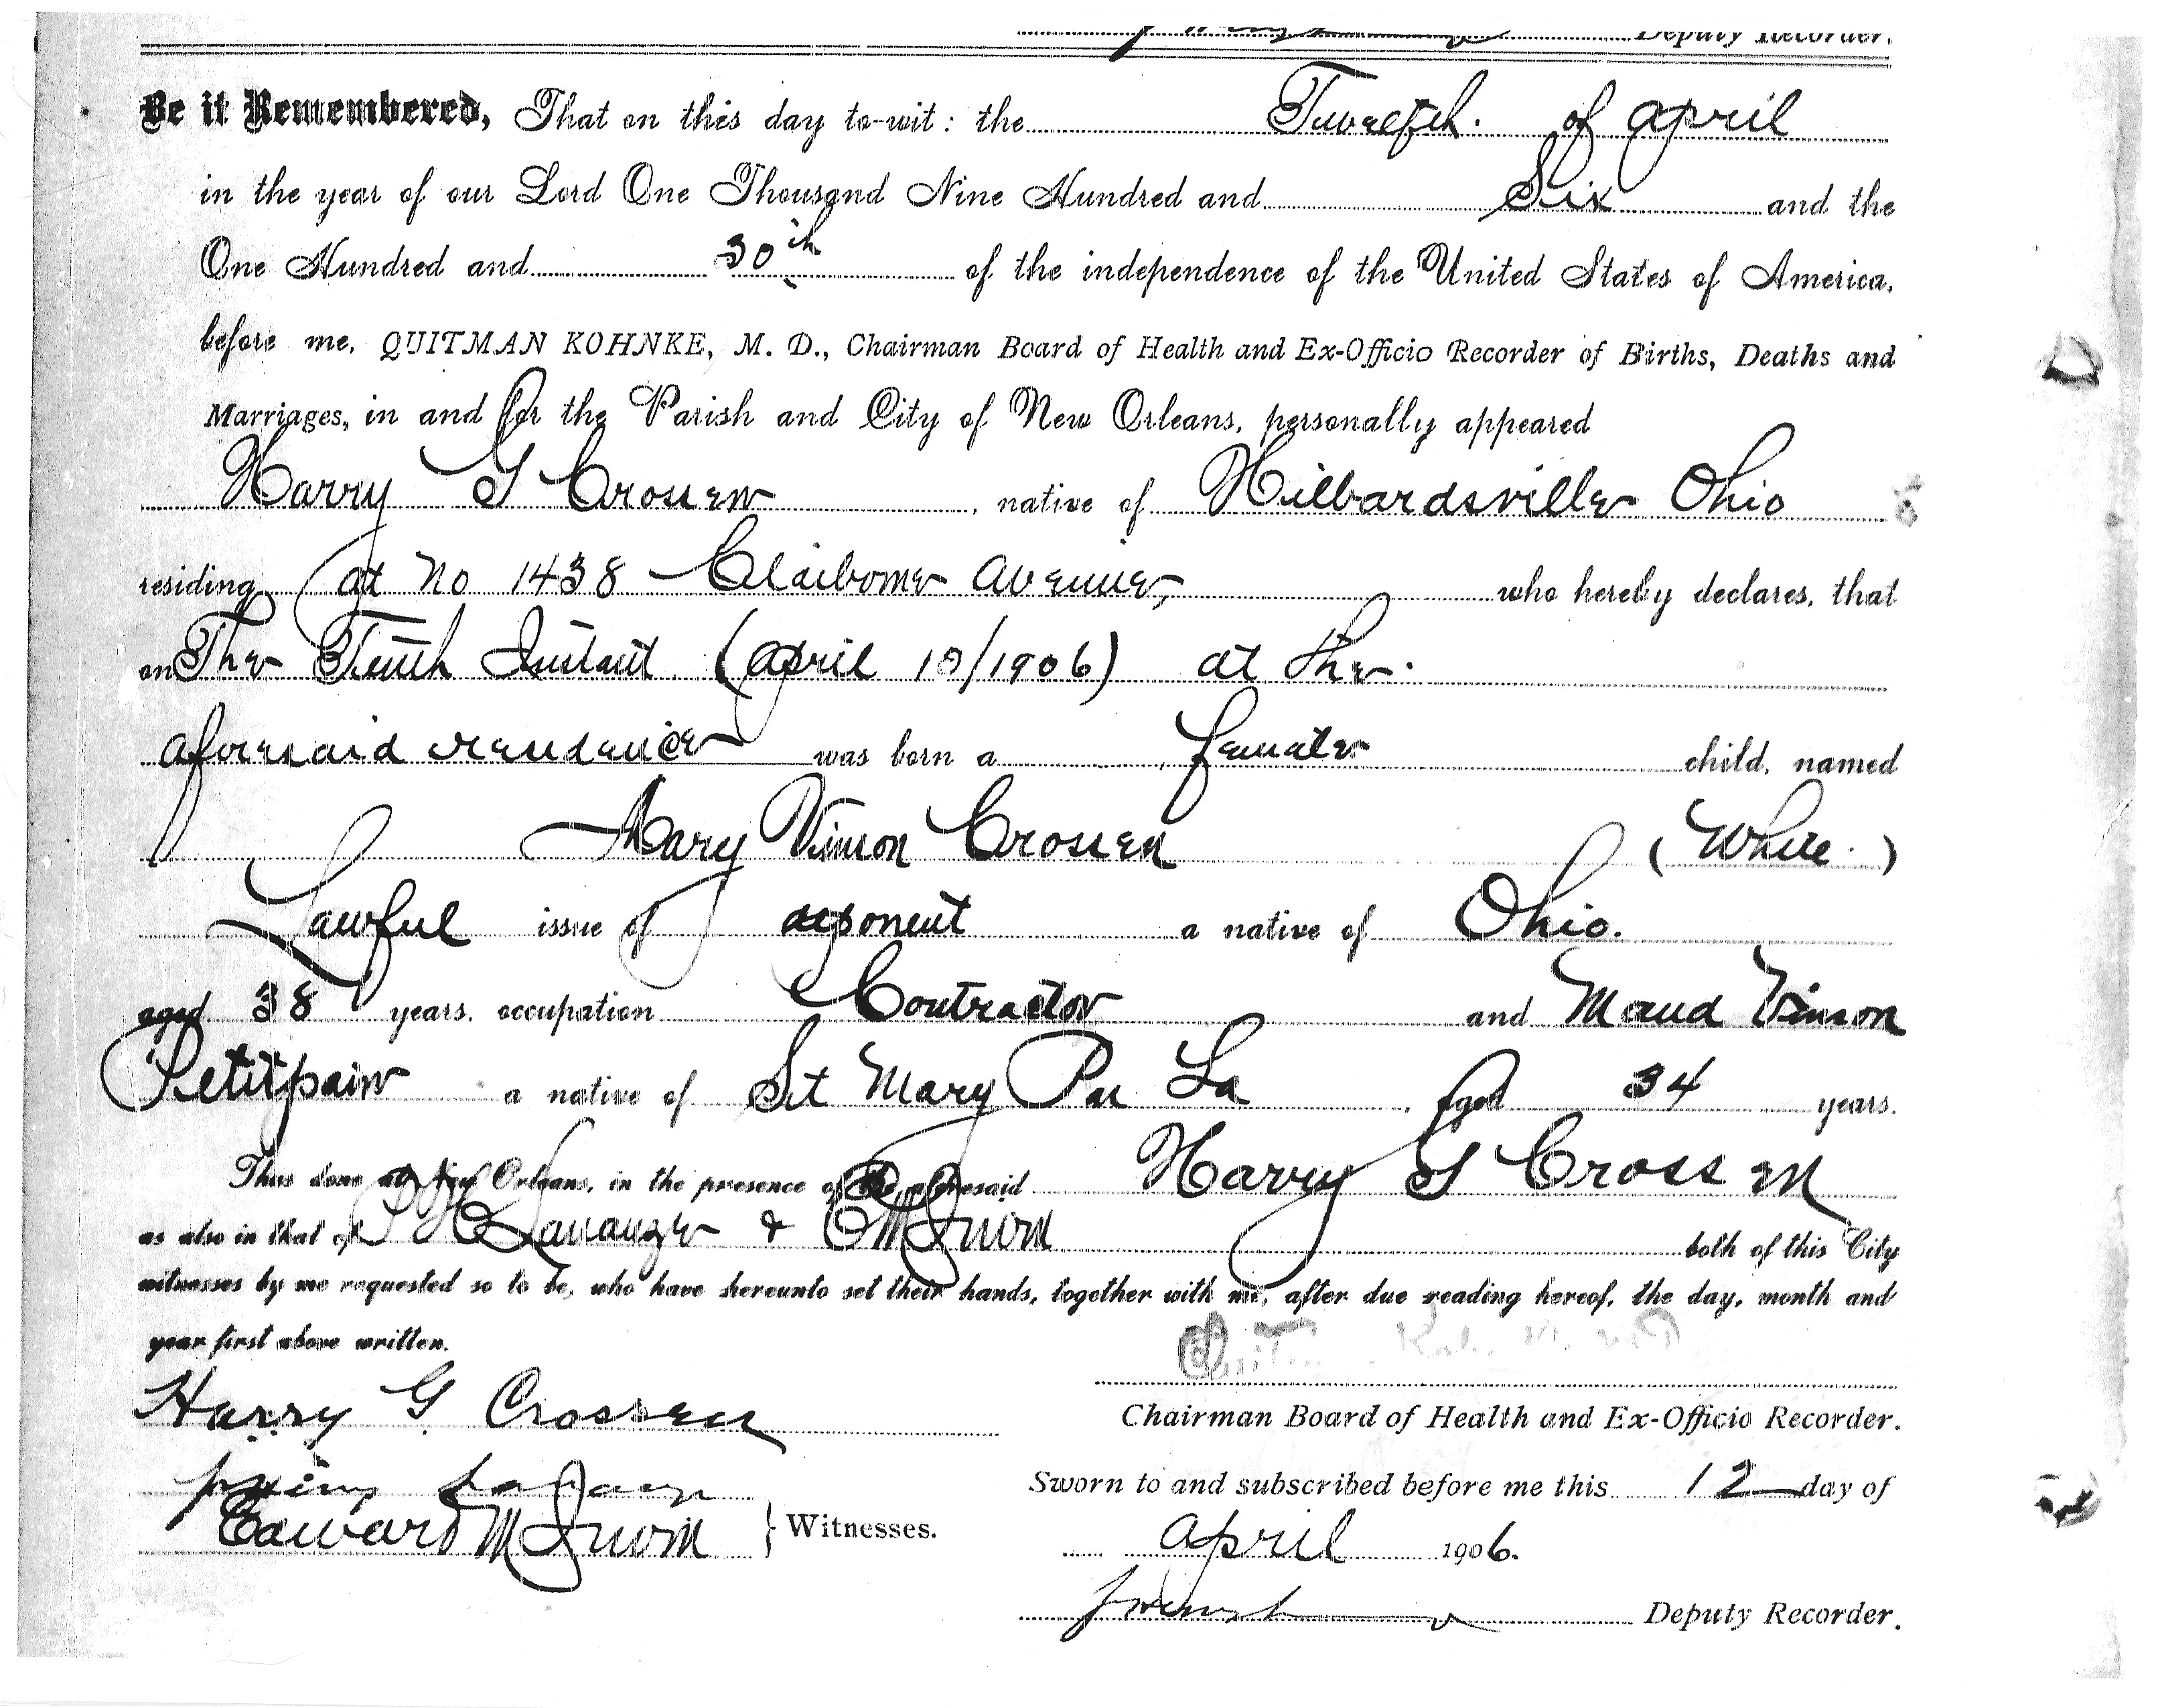 Deputy Recorder.
Be it Remembered, That on this day to-wit: the Twelfth. of April
in the year of our Lord One Thousand Nine Hundred and Six and the
One Hundred and 30th of the independence of the United States of America,
before me, QUITMAN KOHNKE, M. D., Chairman Board of Health and Ex-Officio Recorder of Births, Deaths and
Marriages, in and for the Parish and City of New Orleans, personally appeared
Harry G Crossen, native of Hilbardsville Ohio
residing at No 1438 Claiborne Avenue, who hereby declares, that
on The Tenth Instant (April 10/1906) at the
aforesaid residence was born a female child, named
Mary Vinson Crossen (White.)
Lawful issue of deponent a native of Ohio.
aged 38 years, occupation Contractor and Maud Vinson
Petitpain a native of St Mary Par La, aged 34 years.
Thus done at New Orleans, in the presence of the aforesaid Harry G Crossen
as also in that of P Lanauze & E M Irwin both of this City
witnesses by me requested so to be, who have hereunto set their hands, together with me, after due reading hereof, the day, month and
year first above written.
Harry G Crossen
Chairman Board of Health and Ex-Officio Recorder.
Sworn to and subscribed before me this 12 day of
Edward M Irwin } Witnesses.
April 1906.
Deputy Recorder.